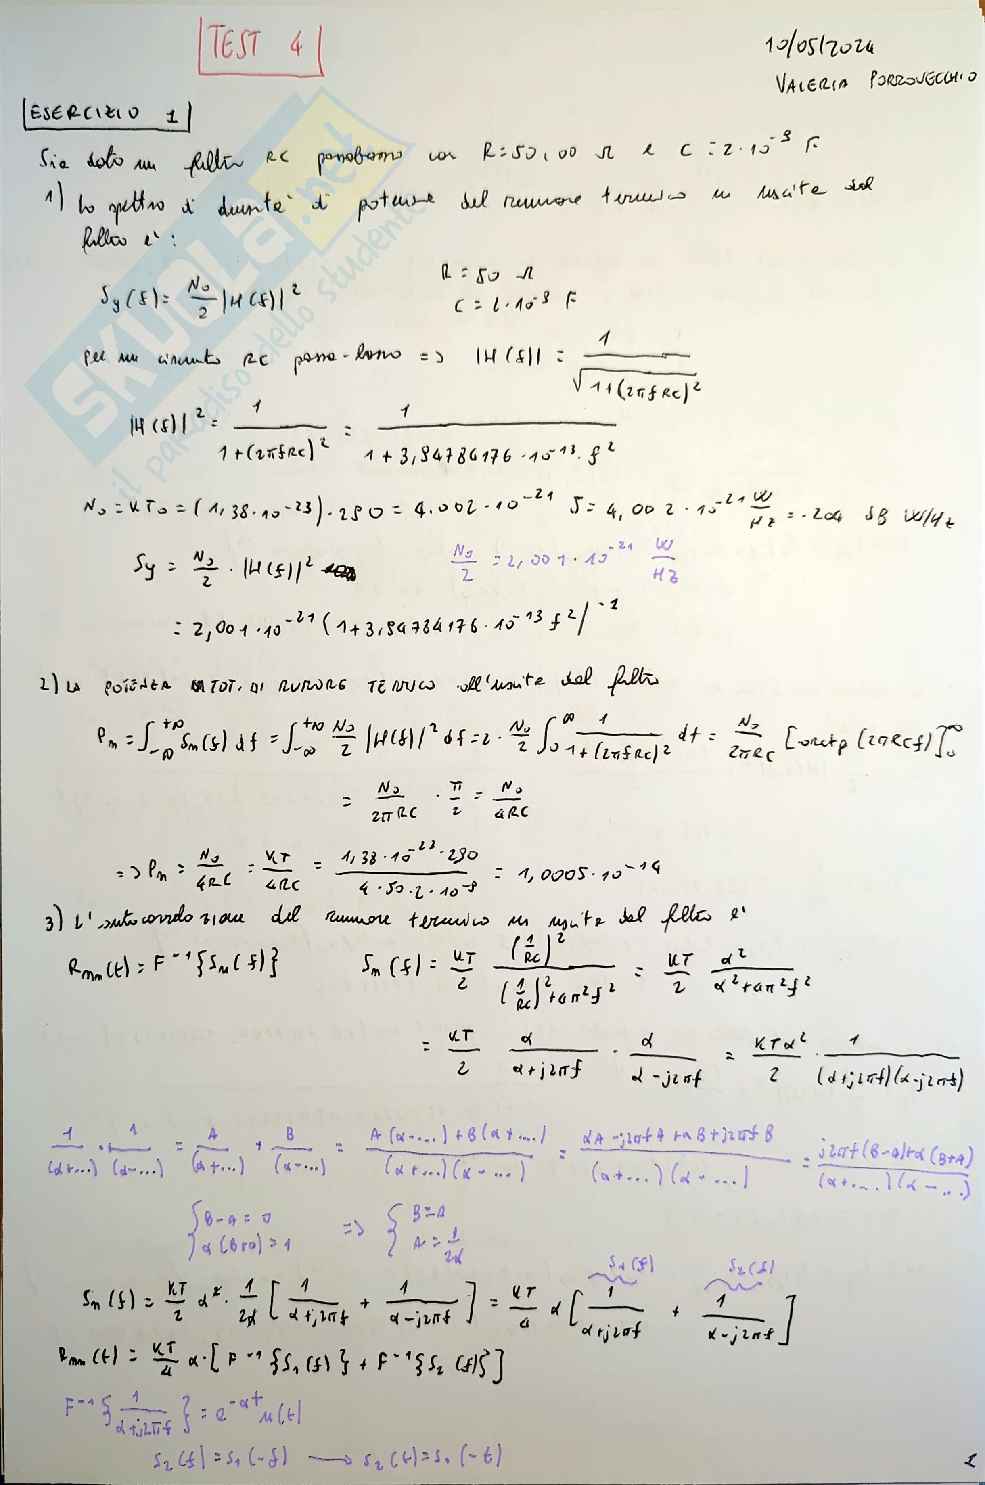 TEST 4
10/05/2024
VALERIA PORROVECCHIO
ESERCIZIO 1
Sia dato un filtro RC passabasso con R = 50,00 Ω e C = 2·10⁻⁹ F
1) Lo spettro di densità di potenza del rumore termico in uscita del
filtro è:
Sy(f) = N₀/2 |H(f)|²
R = 50 Ω
C = 2·10⁻⁹ F
Per un circuito RC passa-basso => |H(f)| = 1/√(1+(2πfRC)²)
|H(f)|² = 1/(1+(2πfRC)²) = 1/(1+3,94784176·10⁻¹³·f²)
N₀ = KT₀ = (1,38·10⁻²³)·290 = 4.002·10⁻²¹ J = 4,002·10⁻²¹ W/Hz = -204 dB W/Hz
Sy = N₀/2 · |H(f)|²
N₀/2 = 2,001·10⁻²¹ W/Hz
= 2,001·10⁻²¹ (1+3,94784176·10⁻¹³ f²)⁻¹
2) LA POTENZA TOT. DI RUMORE TERMICO all'uscita del filtro
Pn = ∫₋∞⁺∞ Sn(f) df = ∫₋∞⁺∞ N₀/2 |H(f)|² df = 2· N₀/2 ∫₀^∞ 1/(1+(2πfRC)²) df = N₀/(2πRC) [arctg (2πRCf)]₀^∞
= N₀/(2πRC) · π/2 = N₀/(4RC)
=> Pn = N₀/(4RC) = KT/(4RC) = (1,38·10⁻²³·290)/(4·50·2·10⁻⁹) = 1,0005·10⁻¹⁴
3) L'autocorrelazione del rumore termico in uscita dal filtro è
Rnn(t) = F⁻¹{Sn(f)}
Sn(f) = KT/2 (1/RC)²/((1/RC)²+4π²f²) = KT/2 α²/(α²+4π²f²)
= KT/2 α/(α+j2πf) · α/(α-j2πf) = KTα²/2 · 1/((α+j2πf)(α-j2πf))
1/(α+...) · 1/(α-...) = A/(α+...) + B/(α-...) = (A(α-...)+B(α+....))/((α+...)(α-...)) = (αA-j2πfA+αB+j2πfB)/((α+...)(α-...)) = (j2πf(B-A)+α(B+A))/((α+...)(α-...))
{B-A=0
α(B+A)=1
=> {B=A
A=1/2α
S₁(f) S₂(f)
Sn(f) = KT/2 α² · 1/2α [1/(α+j2πf) + 1/(α-j2πf)] = KT/4 α [1/(α+j2πf) + 1/(α-j2πf)]
Rnn(t) = KT/4 α·[F⁻¹{S₁(f)} + F⁻¹{S₂(f)}]
F⁻¹{1/(α+j2πf)} = e^(-αt) u(t)
S₂(f) = S₁(-f) → s₂(t) = s₁(-t)
1
SKUOLA.net
il paradiso dello studente